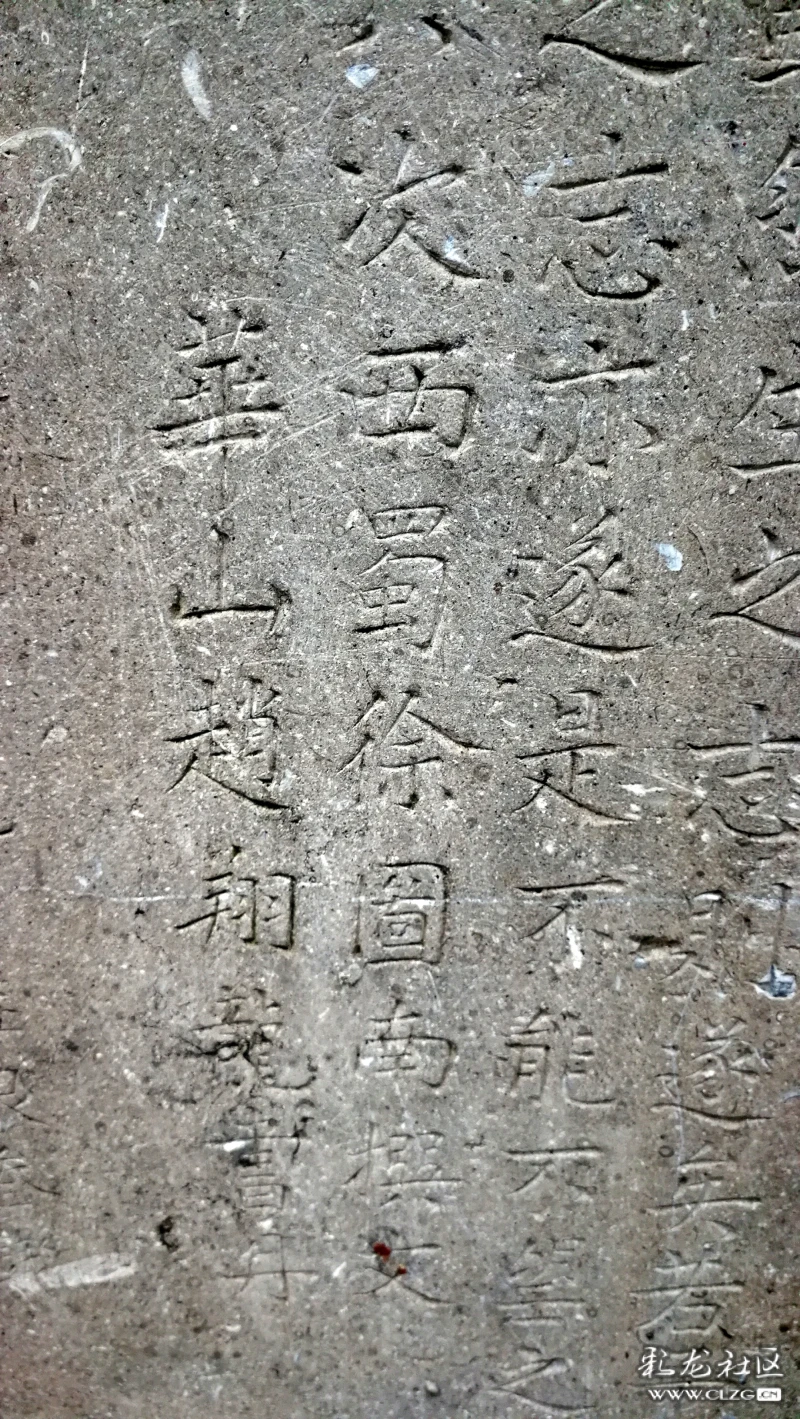 余生之志則遂矣若
之志亦遂是不能不望之
次西蜀徐圖南撰文
華山趙翔龍書丹
彩龙社区
WWW.CLZG.CN